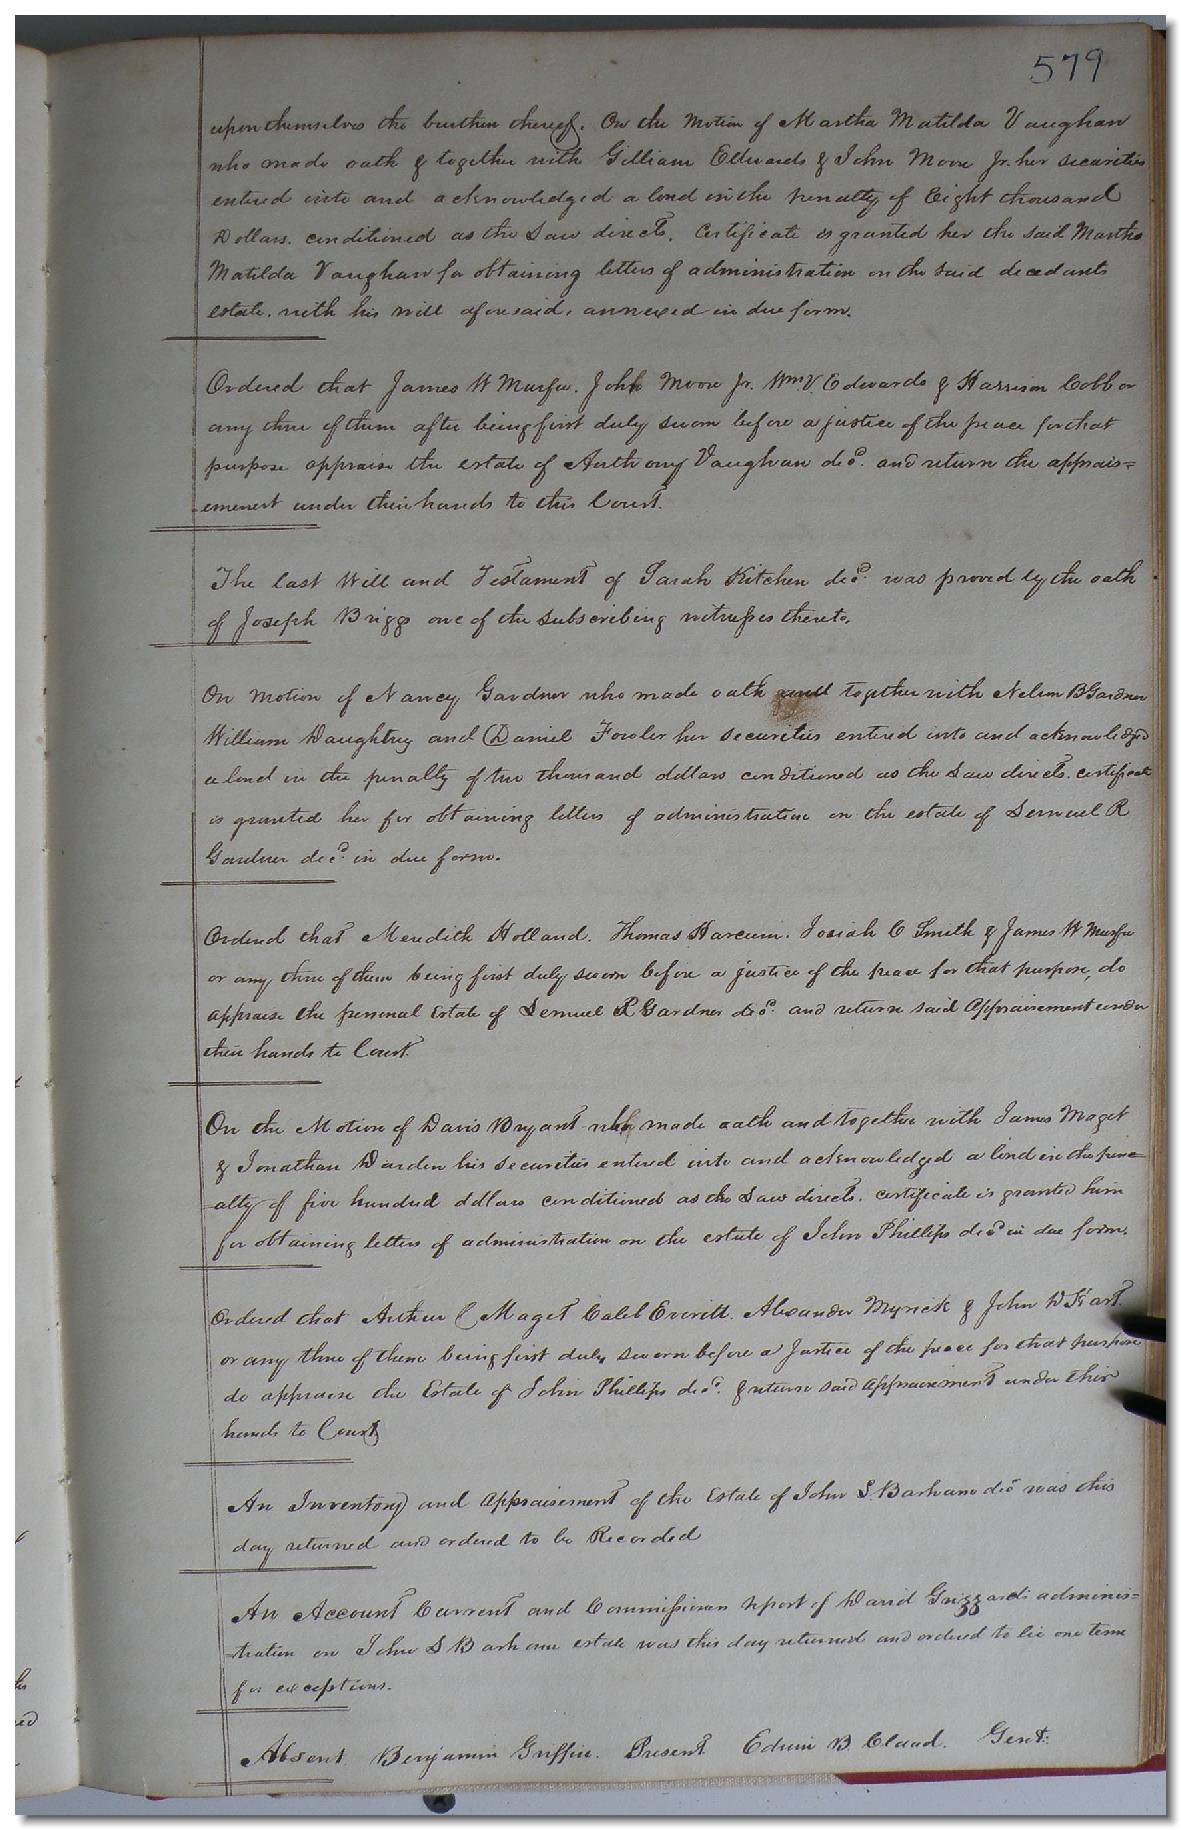 579
upon themselves the burthen thereof. On the Motion of Martha Matilda Vaughan
who made oath & together with Gilliam Edwards & John Moore Jr. her securities
entered into and acknowledged a bond in the penalty of Eight thousand
Dollars. conditioned as the Law directs. Certificate is granted her the said Martha
Matilda Vaughan for obtaining letters of administration on the said decedants
estate. with his will aforesaid, annexed in due form.
Ordered that James W Murfee. John Moore Jr. Wm V. Edwards & Harrison Cobb or
any three of them after being first duly sworn before a justice of the peace for that
purpose appraise the estate of Anthony Vaughan decd. and return the apprais=
ement under their hands to this Court.
The last Will and Testament of Sarah Kitchen decd. was proved by the oath
of Joseph Briggs one of the subscribing witnesses thereto.
On motion of Nancy Gardner who made oath and together with Nelson B Gardner
William Daughtrey and Daniel Fowler her securities entered into and acknowledged
a bond in the penalty of two thousand dollars conditioned as the Law directs. certificate
is granted her for obtaining letters of administration on the estate of Lemuel R
Gardner decd. in due form.
Ordered that Meredith Holland. Thomas Harcum. Josiah C Smith & James W Murfee
or any three of them being first duly sworn before a justice of the peace for that purpose, do
appraise the personal Estate of Lemuel R Gardner decd. and return said Appraisement under
their hands to Court.
On the Motion of Davis Bryant who made oath and together with James Maget
& Jonathan Darden his securities entered into and acknowledged a bond in the pen=
alty of five hundred dollars conditioned as the Law directs. certificate is granted him
for obtaining letters of administration on the estate of John Phillips decd in due form.
Ordered that Arthur C Maget Caleb Everitt. Alexander Myrick & John D Hart.
or any three of them being first duly sworn before a Justice of the peace for that purpose
do appraise the Estate of John Phillips decd. & return said appraisement under their
hands to Court
An Inventory and Appraisement of the Estate of John S. Barham decd was this
day returned and ordered to be Recorded
An Account Current and Commissioners report of David Grizzards adminis=
tration on John S Barham estate was this day returned and ordered to lie one term
for exceptions.
Absent Benjamin Griffin. Present Edwin B. Claud. Gent: